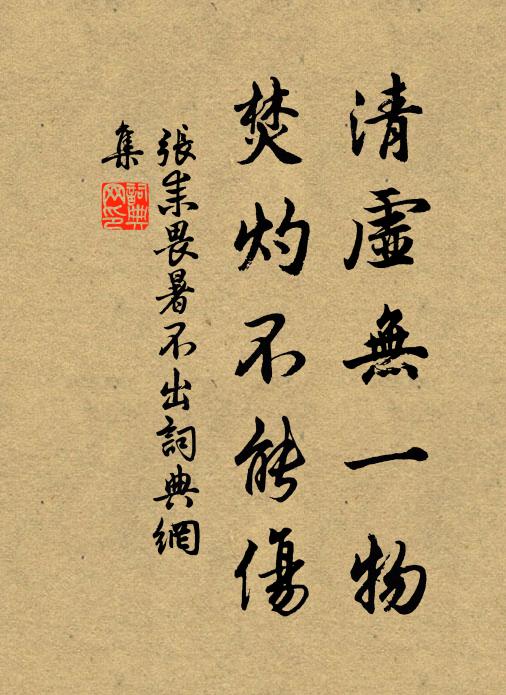 清虛無一物
焚灼不能傷
張耒畏暑不出詞典網
集
詞典
网印